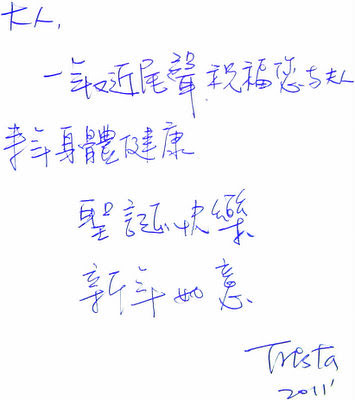 大人,
一年又近尾聲,祝福您与夫人
年身體健康
聖誕快樂
新年如意
Trista
2011'